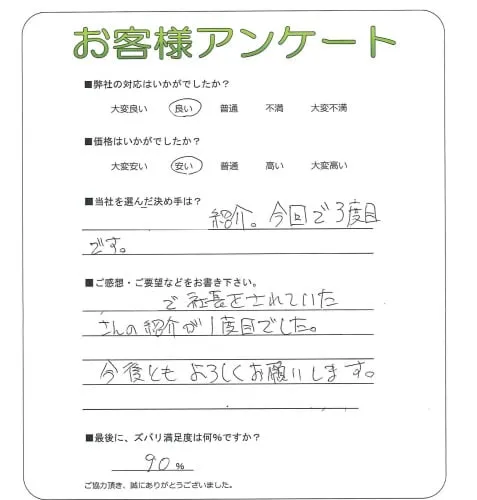 お客様アンケート
■弊社の対応はいかがでしたか?
大変良い 良い 普通 不満 大変不満
■価格はいかがでしたか?
大変安い 安い 普通 高い 大変高い
■当社を選んだ決め手は?
紹介。今回で3度目
です。
■ご感想・ご要望などをお書き下さい。
で社長をされていた
さんの紹介が1度目でした。
今後とも よろしくお願いします。
■最後に、ズバリ満足度は何%ですか?
90 %
ご協力頂き、誠にありがとうございました。